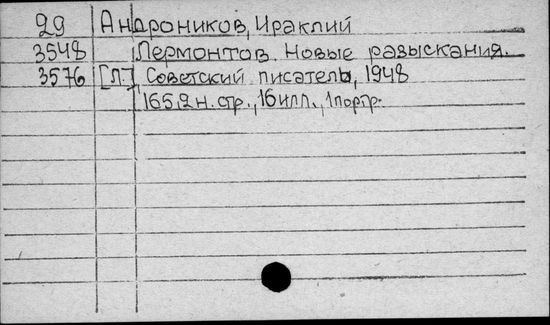 29 Андроников, Ираклий
3548 Лермонтов. Новые разыскания.
3576 [Л.] Советский писатель, 1948
165,2 н. стр., 16 илл., 1 портр.